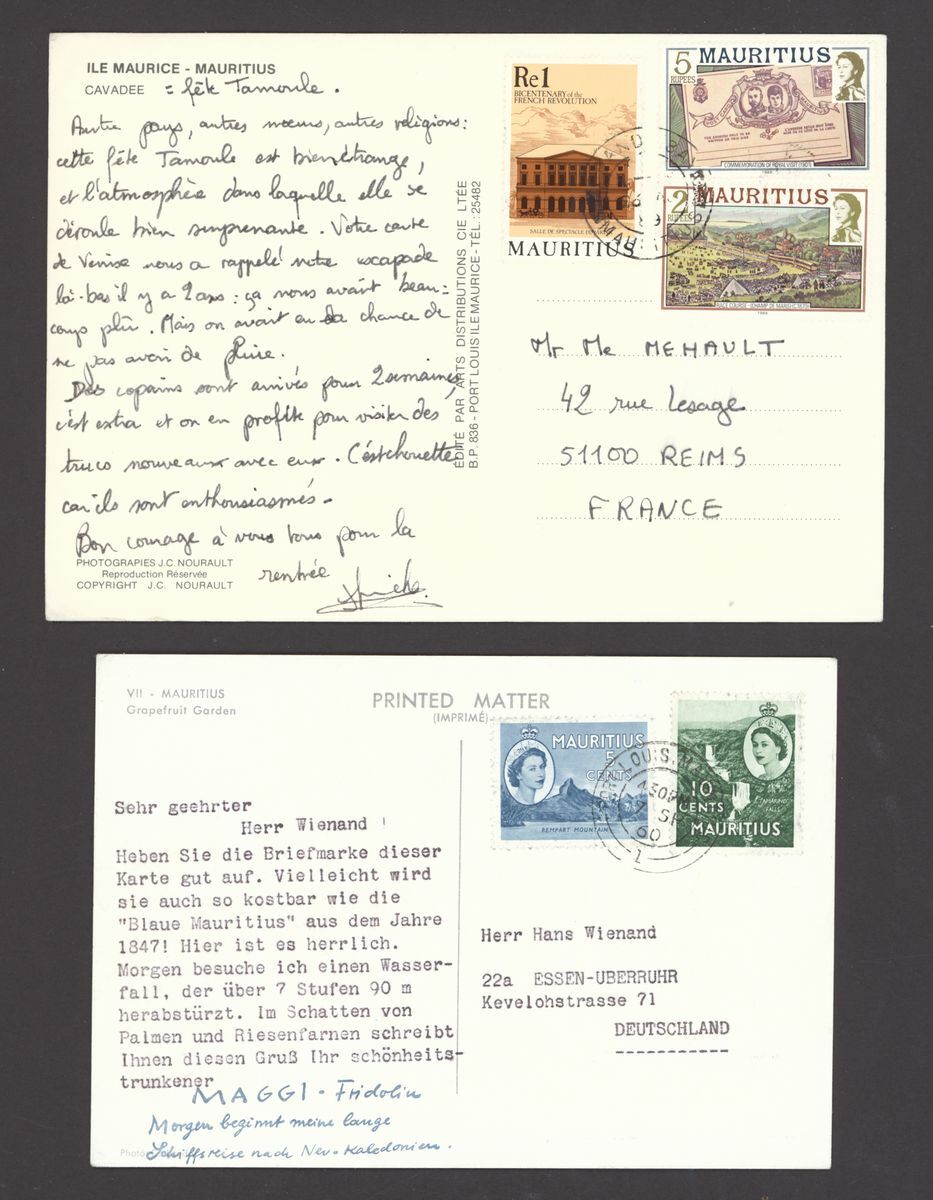 ILE MAURICE - MAURITIUS
CAVADEE = fête Tamoule.
Autre pays, autres mœurs, autres religions:
cette fête Tamoule est bien étrange,
et l'atmosphère dans laquelle elle se
déroule bien surprenante. Votre carte
de Venise nous a rappelé notre escapade
là-bas il y a 2 ans: ça nous avait beau-
coup plu. Mais on avait eu la chance de
ne pas avoir de pluie.
Des copains sont arrivés pour 2 semaines,
c'est extra et on en profite pour visiter des
trucs nouveaux avec eux. C'est chouette
car ils sont enthousiasmés-
Bon courage à vous tous pour la
rentrée
PHOTOGRAPIES J.C. NOURAULT
Reproduction Réservée
COPYRIGHT J.C. NOURAULT
ÉDITÉ PAR ARTS DISTRIBUTIONS CIE LTÉE
B.P. 836 - PORT LOUIS ILE MAURICE - TÉL.: 25482
Re1
BICENTENARY of the
FRENCH REVOLUTION
SALLE DE SPECTACLE
MAURITIUS
5
RUPEES
MAURITIUS
COMMEMORATION OF ROYAL VISIT (1901)
2
RUPEES
MAURITIUS
RACE COURSE - CHAMP DE MARS
Mr Me MEHAULT
42 rue Lesage
51100 REIMS
FRANCE
VII - MAURITIUS
Grapefruit Garden
PRINTED MATTER
(IMPRIMÉ)
MAURITIUS
5
CENTS
REMPART MOUNTAIN
10
CENTS
TAMARIND
FALLS
MAURITIUS
PORT LOUIS
430P
SP
60
1
Sehr geehrter
Herr Wienand !
Heben Sie die Briefmarke dieser
Karte gut auf. Vielleicht wird
sie auch so kostbar wie die
"Blaue Mauritius" aus dem Jahre
1847! Hier ist es herrlich.
Morgen besuche ich einen Wasser-
fall, der über 7 Stufen 90 m
herabstürzt. Im Schatten von
Palmen und Riesenfarnen schreibt
Ihnen diesen Gruß Ihr schönheits-
trunkener
MAGGI - Fridolin
Morgen beginnt meine lange
Schiffsreise nach Neu-Kaledonien.
Herr Hans Wienand
22a ESSEN-UBERRUHR
Kevelohstrasse 71
DEUTSCHLAND
-----------